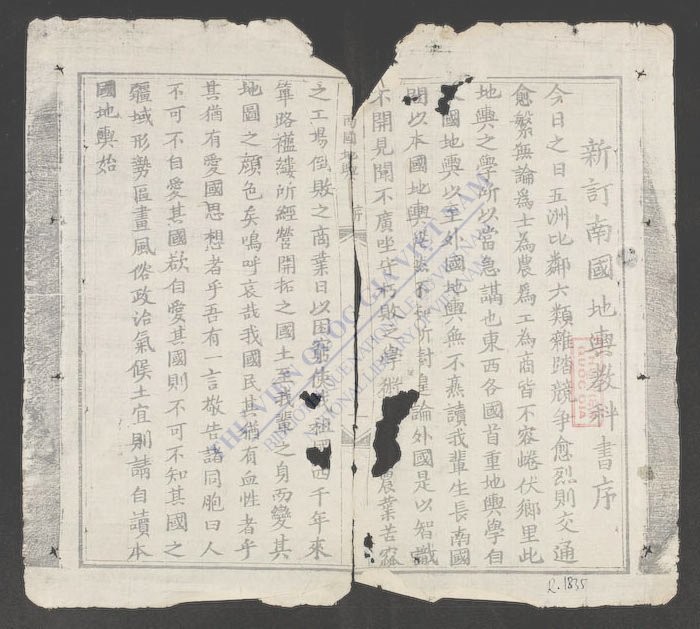 新訂南國地輿教科書序
今日之日五洲比鄰六類雜踏競爭愈烈則交通
愈繁無論爲士為農爲工為商皆不容蜷伏鄉里此
地輿之學所以當急講也東西各國首重地輿學自
國地輿以至外國地輿無不熟讀我輩生長南國
問以本國地輿茫然不知所對遑論外國是以智識
不開見聞不廣坐守朽敗之學 農業苦窳
南國地輿 序
之工場倒敗之商業日以困窮使我祖國四千年來
篳路襤褸所經營開拓之國土至我輩之身而變其
地圖之顔色矣嗚呼哀哉我國民其猶有血性者乎
其猶有愛國思想者乎吾有一言敬告諸同胞曰人
不可不自愛其國欲自愛其國則不可不知其國之
疆域形勢區畫風俗政治氣候土宜則請自讀本
國地輿始
THƯ VIỆN QUỐC GIA VIỆT NAM
BIBLIOTHEQUE NATIONALE DU VIETNAM
NATIONAL LIBRARY OF VIETNAM
QUỐC GIA
R.1835